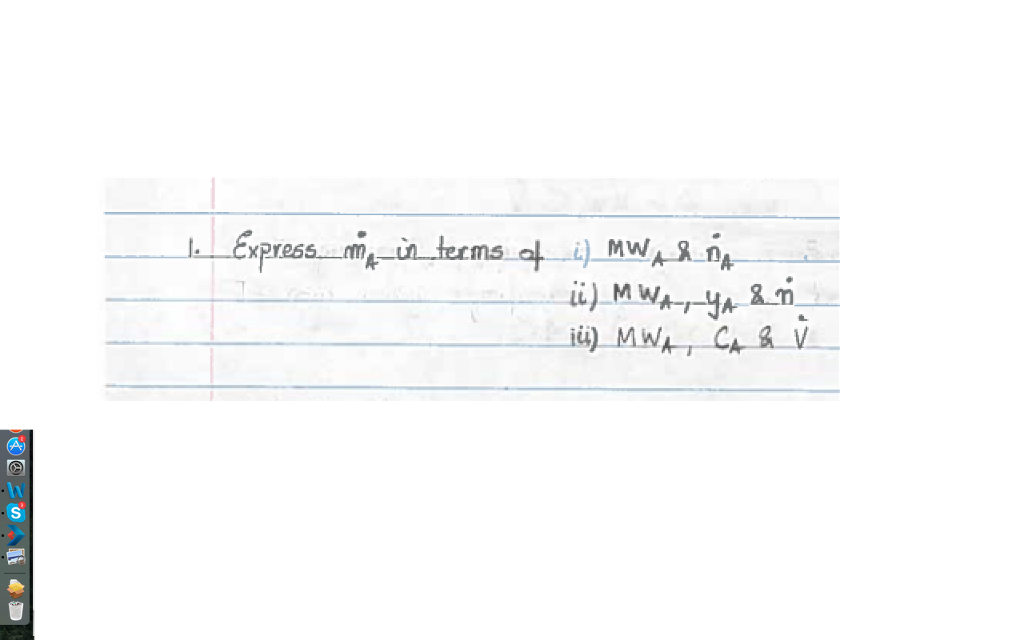 1. Express ṁ_A in terms of i) MW_A & ṅ_A
ii) MW_A, y_A & ṅ
iii) MW_A, C_A & V̇